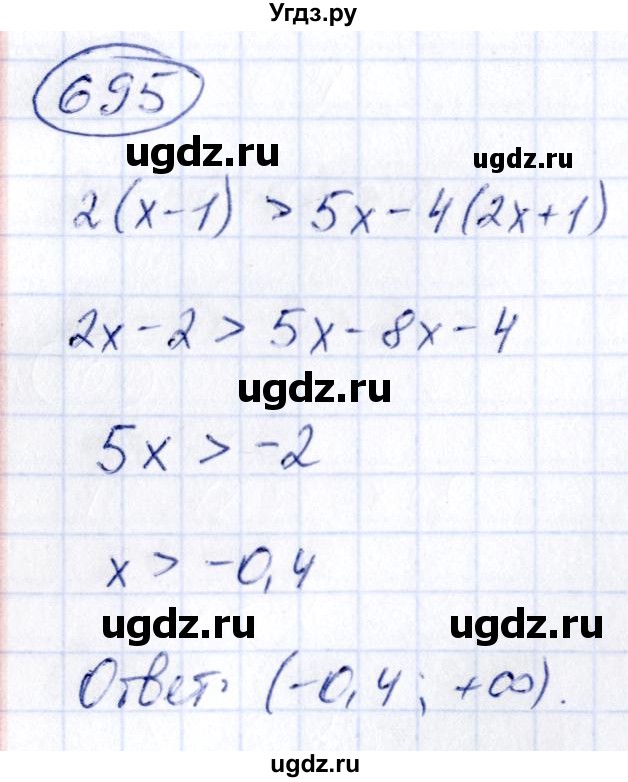 Угдз.ру
695
ugdz.ru ugdz.ru
2(x-1) > 5x-4(2x+1)
2x-2 > 5x-8x-4
ugdz.ru
5x > -2
x > -0,4
ugdz.ru ugdz.ru
Ответ: (-0,4; +∞).
ugdz.ru